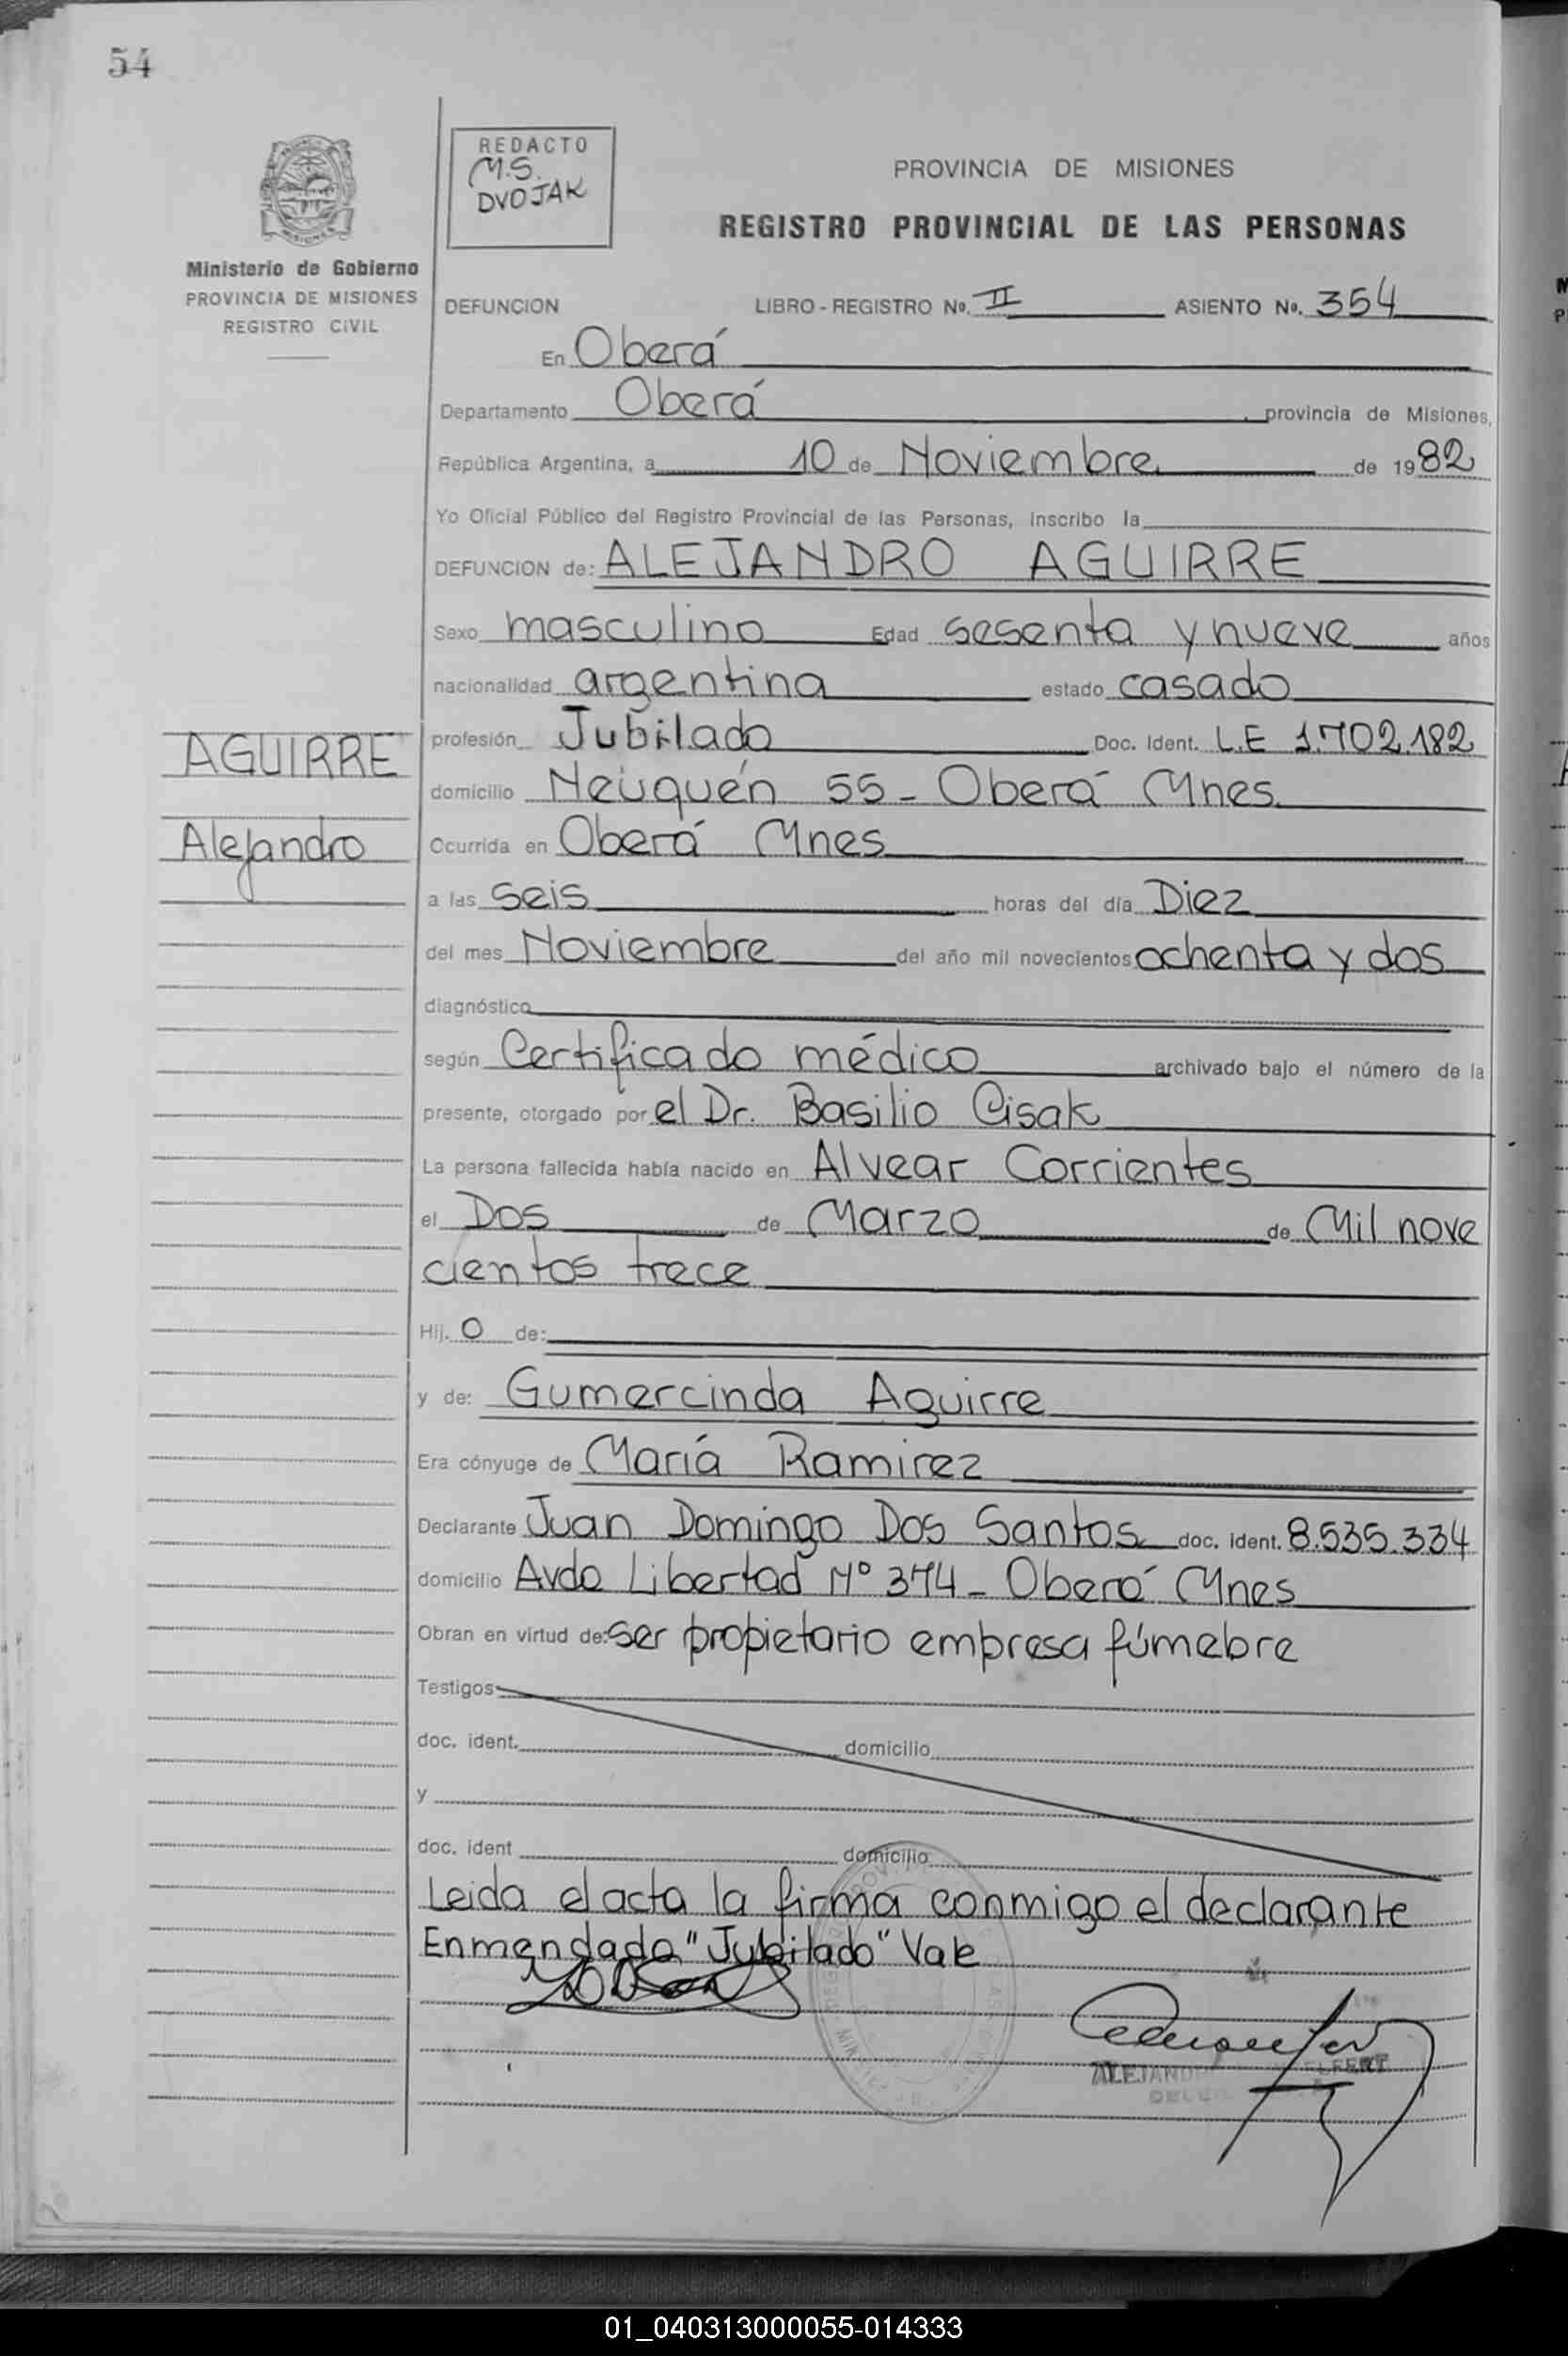 54
REDACTO
M.S.
DVOJAK
MISIONES
Ministerio de Gobierno
PROVINCIA DE MISIONES
REGISTRO CIVIL
PROVINCIA DE MISIONES
REGISTRO PROVINCIAL DE LAS PERSONAS
DEFUNCION LIBRO-REGISTRO No. II ASIENTO No. 354
En Oberá
Departamento Oberá, provincia de Misiones,
República Argentina, a 10 de Noviembre de 1982
Yo Oficial Público del Registro Provincial de las Personas, inscribo la
DEFUNCION de: ALEJANDRO AGUIRRE
Sexo masculino Edad sesenta y nueve años
nacionalidad argentina estado casado
AGUIRRE
Alejandro
profesión Jubilado Doc. Ident. L.E 1.702.182
domicilio Neuquén 55 - Oberá Mnes
Ocurrida en Oberá Mnes
a las seis horas del día Diez
del mes Noviembre del año mil novecientos ochenta y dos
diagnóstico
según Certificado médico archivado bajo el número de la
presente, otorgado por el Dr. Basilio Cisak
La persona fallecida había nacido en Alvear Corrientes
el Dos de Marzo de Mil nove
cientos trece
Hij. o de:
y de: Gumercinda Aguirre
Era cónyuge de María Ramirez
Declarante Juan Domingo Dos Santos doc. ident. 8.535.334
domicilio Avda Libertad Nº 374 - Oberá Mnes
Obran en virtud de: ser propietario empresa fúmebre
Testigos
doc. ident. domicilio
y
doc. ident domicilio
Leida el acta la firma conmigo el declarante
Enmendado "Jubilado" Vale
01_040313000055-014333